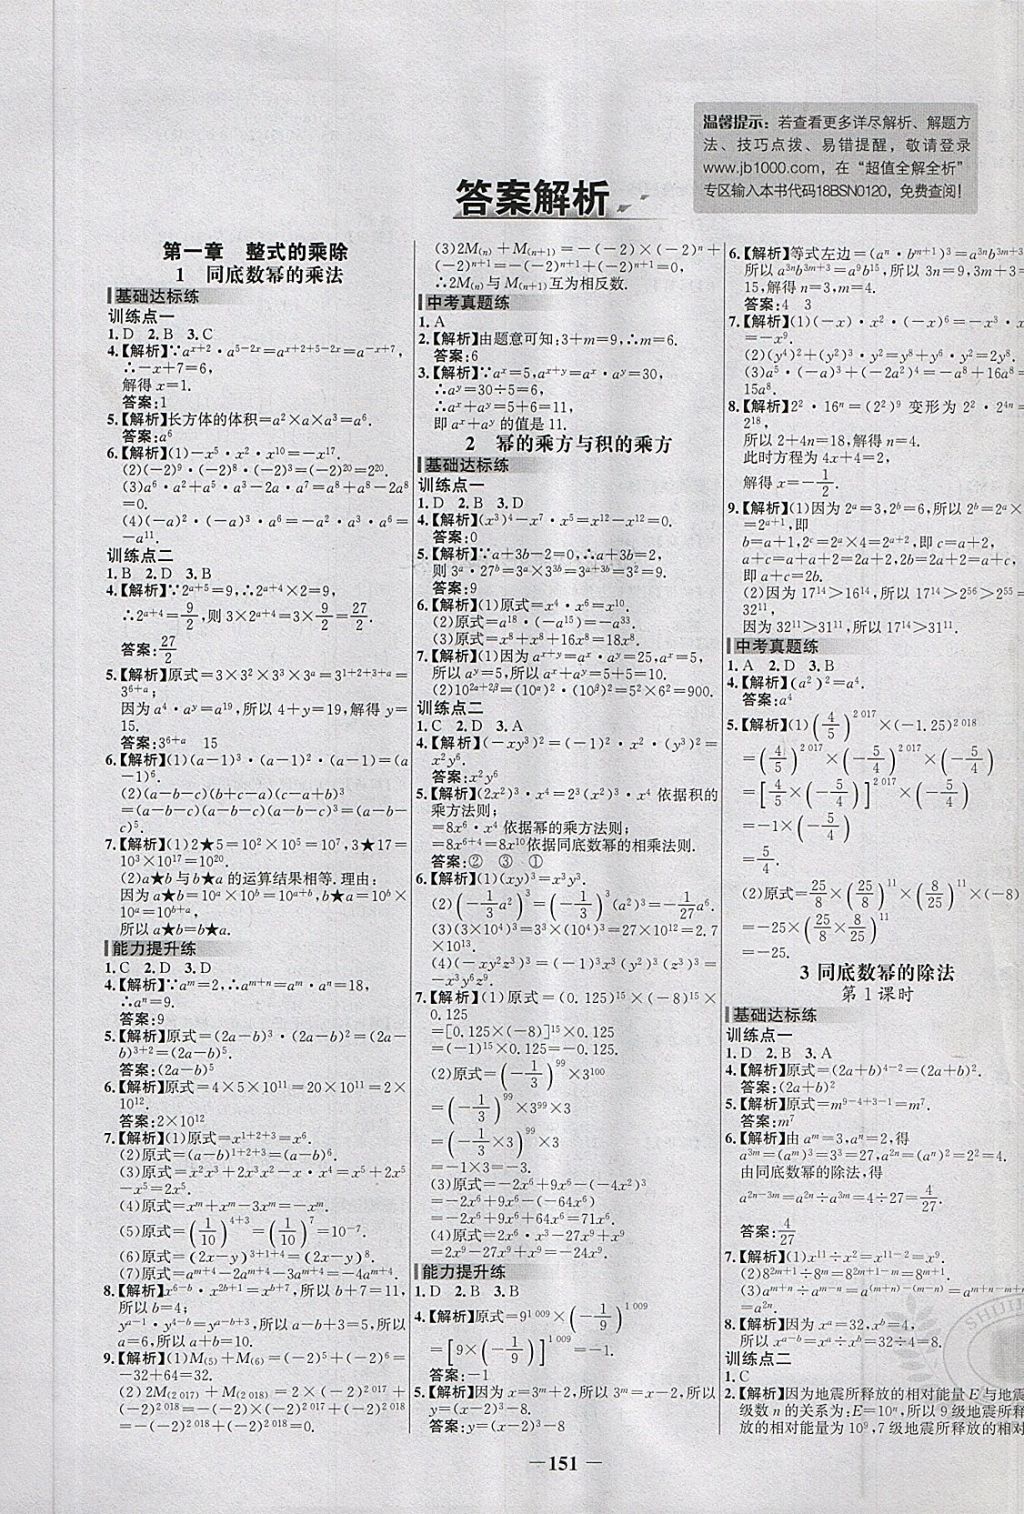 温馨提示：若查看更多详尽解析、解题方
法、技巧点拨、易错提醒，敬请登录
www.jb1000.com，在“超值全解全析”
专区输入本书代码18BSN0120，免费查阅！
答案解析
第一章　整式的乘除
1　同底数幂的乘法
基础达标练
训练点一
1.D　2.B　3.C
4.【解析】∵aˣ⁺²·a⁵⁻²ˣ=aˣ⁺²⁺⁵⁻²ˣ=a⁻ˣ⁺⁷,
∴-x+7=6,
解得 x=1.
答案:1
5.【解析】长方体的体积=a²×a×a³=a⁶.
答案:a⁶
6.【解析】(1)-x⁵·x²·x¹⁰=-x¹⁷.
(2)(-2)⁹·(-2)⁸·(-2)³=(-2)²⁰=2²⁰.
(3)a⁶·a²+a⁵·a³-2a·a⁷=a⁸+a⁸-2a⁸
=0.
(4)(-a)²·(-a)³·a⁶=-a²·a³·a⁶=
-a¹¹.
训练点二
1.B　2.D　3.B
4.【解析】∵2^(a+5)=9,∴2^(a+4)×2=9,
∴2^(a+4)=9/2,则 3×2^(a+4)=3×9/2=27/2.
答案:27/2
5.【解析】原式=3×3²×3³×3ᵃ=3^(1+2+3+a)=
3^(6+a);
因为 a⁴·a^y=a¹⁹,所以 4+y=19,解得 y=
15.
答案:3^(6+a)　15
6.【解析】(1)(a-1)³·(a-1)²·(a-1)=(a
-1)⁶.
(2)(a-b-c)(b+c-a)(c-a+b)³
=(a-b-c)(a-b-c)(a-b-c)³=(a-b-
c)⁵.
7.【解析】(1)2★5=10²×10⁵=10⁷,3★17=
10³×10¹⁷=10²⁰.
(2)a★b 与 b★a 的运算结果相等.理由:
因为 a★b=10ᵃ×10ᵇ=10^(a+b),b★a=10ᵇ×
10ᵃ=10^(b+a),
所以 a★b=b★a.
能力提升练
1.C　2.D　3.D
4.【解析】∵aᵐ=2,∴a^(m+n)=aᵐ·aⁿ=18,
∴aⁿ=9.
答案:9
5.【解析】原式=(2a-b)³·(2a-b)²=(2a-
b)³⁺²=(2a-b)⁵.
答案:(2a-b)⁵
6.【解析】原式=4×5×10¹¹=20×10¹¹=2×
10¹².
答案:2×10¹²
7.【解析】(1)原式=x¹⁺²⁺³=x⁶.
(2)原式=(a-b)¹⁺²⁺³=(a-b)⁶.
(3)原式=x²x³+2x³x²-x⁵=x⁵+2x⁵
-x⁵=2x⁵.
(4)原式=xᵐ+xᵐ-3xᵐ=-xᵐ.
(5)原式=(1/10)⁴⁺³=(1/10)⁷=10⁻⁷.
(6)原式=(2x-y)³⁺¹⁺⁴=(2x-y)⁸.
(7)原式=a^(m+4)-2a^(m+4)-3a^(m+4)=-4a^(m+4).
8.【解析】x^(6-b)·x^(2b+1)=x^(b+7),所以 b+7=11,
所以 b=4;
y^(a-1)·y^(4-b)=y^(a-b+3),所以 a-b+3=5,所以
a=6,所以 a+b=10.
9.【解析】(1)M₍₅₎+M₍₆₎=(-2)⁵+(-2)⁶=
-32+64=32.
(2)2M₍₂₀₁₇₎+M₍₂₀₁₈₎=2×(-2)²⁰¹⁷+
(-2)²⁰¹⁸=-(-2)×(-2)²⁰¹⁷+
(-2)²⁰¹⁸=-(-2)²⁰¹⁸+(-2)²⁰¹⁸=0.
(3)2M₍ₙ₎+M₍ₙ₊₁₎=-(-2)×(-2)ⁿ+
(-2)ⁿ⁺¹=-(-2)ⁿ⁺¹+(-2)ⁿ⁺¹=0,
∴2M₍ₙ₎与 M₍ₙ₊₁₎互为相反数.
中考真题练
1.A
2.【解析】由题意可知:3+m=9,∴m=6.
答案:6
3.【解析】∵aˣ=5,a^(x+y)=aˣ·a^y=30,
∴a^y=30÷5=6,
∴aˣ+a^y=5+6=11,
即 aˣ+a^y 的值是 11.
2　幂的乘方与积的乘方
基础达标练
训练点一
1.D　2.B　3.D
4.【解析】(x³)⁴-x⁷·x⁵=x¹²-x¹²=0.
答案:0
5.【解析】∵a+3b-2=0,∴a+3b=2,
则 3ᵃ·27ᵇ=3ᵃ×3^(3b)=3^(a+3b)=3²=9.
答案:9
6.【解析】(1)原式=x⁴·x⁶=x¹⁰.
(2)原式=a¹⁸·(-a¹⁵)=-a³³.
(3)原式=x⁸+x⁸+16x⁸=18x⁸.
7.【解析】(1)因为 a^(x+y)=aˣ·a^y=25,aˣ=5,
所以 a^y=5,所以 aˣ+a^y=5+5=10.
(2)10^(2α+2β)=(10^α)²·(10^β)²=5²×6²=900.
训练点二
1.C　2.D　3.A
4.【解析】(-xy³)²=(-1)²·x²·(y³)²=
x²y⁶.
答案:x²y⁶
5.【解析】(2x²)³·x⁴=2³(x²)³·x⁴ 依据积的
乘方法则;
=8x⁶·x⁴ 依据幂的乘方法则;
=8x⁶⁺⁴=8x¹⁰依据同底数幂的相乘法则.
答案:②　③　①
6.【解析】(1)(xy)³=x³y³.
(2)(-1/3a²)³=(-1/3)³(a²)³=-1/27a⁶.
(3)(3×10⁴)³=3³×(10⁴)³=27×10¹²=2.7
×10¹³.
(4)(-xy²z³)³=(-1)³x³(y²)³(z³)³=
-x³y⁶z⁹.
7.【解析】(1)原式=(0.125)¹⁵×(-8)¹⁵×
0.125
=[0.125×(-8)]¹⁵×0.125
=(-1)¹⁵×0.125=-0.125.
(2)原式=(-1/3)⁹⁹×3¹⁰⁰
=(-1/3)⁹⁹×3⁹⁹×3
=(-1/3×3)⁹⁹×3
=-1×3=-3.
(3)原式=-2x⁶+9x⁶-(-4x²)³
=-2x⁶+9x⁶-(-64x⁶)
=-2x⁶+9x⁶+64x⁶=71x⁶.
(4)原式=2x⁶·x³-27x⁹+x⁹
=2x⁹-27x⁹+x⁹=-24x⁹.
能力提升练
1.D　2.B　3.B
4.【解析】原式=9¹⁰⁰⁹×(-1/9)¹⁰⁰⁹
=[9×(-1/9)]¹⁰⁰⁹=-1.
答案:-1
5.【解析】因为 x=3ᵐ+2,所以 3ᵐ=x-2,所以
y=(x-2)³-8.
答案:y=(x-2)³-8
6.【解析】等式左边=(aⁿ·b^(m+1))³=a^(3n)b^(3m+3)
所以 a^(3n)b^(3m+3)=a⁹b¹⁵,所以 3n=9,3m+3=
15,解得 n=3,m=4.
答案:4　3
7.【解析】(1)(-x)·x²·(-x)⁶=-x³·x⁶
=-x⁹.
(2)(y⁴)²+(y²)³·y²=y⁸+y⁶·y²=2y⁸.
(3)a⁵·(-a)³+(-2a²)⁴=-a⁸+16a⁸=
15a⁸.
8.【解析】2²·16ⁿ=(2²)⁹ 变形为 2²·2⁴ⁿ=
2¹⁸,
所以 2+4n=18,解得 n=4.
此时方程为 4x+4=2,
解得 x=-1/2.
9.【解析】(1)因为 2ᵃ=3,2ᵇ=6,所以 2ᵇ=2ᵃ×
=2^(a+1),即
b=a+1,2ᶜ=2ᵃ×4=2^(a+2),即 c=a+2,
a+c=a+a+2=2a+2,2b=2a+2=a+c,
即 a+c=2b.
(2)因为 17¹⁴>16¹⁴,所以 17¹⁴>2⁵⁶>2⁵⁵=
32¹¹,
因为 32¹¹>31¹¹,所以 17¹⁴>31¹¹.
中考真题练
1.A　2.D　3.B
4.【解析】(a²)²=a⁴.
答案:a⁴
5.【解析】(1)(4/5)²⁰¹⁷×(-1.25)²⁰¹⁸
=(4/5)²⁰¹⁷×(-5/4)²⁰¹⁷×(-5/4)
=[4/5×(-5/4)]²⁰¹⁷×(-5/4)
=-1×(-5/4)
=5/4.
(2)原式=25/8×(25/8)¹¹×(8/25)¹¹×(-8)
=-25×(25/8×8/25)¹¹
=-25.
3 同底数幂的除法
第 1 课时
基础达标练
训练点一
1.D　2.B　3.A
4.【解析】原式=(2a+b)⁴⁻²=(2a+b)².
答案:(2a+b)²
5.【解析】原式=m⁹⁻⁴⁺³⁻¹=m⁷.
答案:m⁷
6.【解析】由 aᵐ=3,aⁿ=2,得
a^(3m)=(aᵐ)³=3³=27,a^(2n)=(aⁿ)²=2²=4.
由同底数幂的除法,得
a^(2n-3m)=a^(2n)÷a^(3m)=4÷27=4/27.
答案:4/27
7.【解析】(1)x¹¹÷x²=x¹¹⁻²=x⁹.
(2)8^(2m+1)÷8ᵐ=8^(2m+1-m)=8^(m+1).
(3)a^(m+n)÷a^(m-n)=a^((m+n)-(m-n))=a^(m+n-m+n)
=a^(2n).
8.【解析】因为 xᵃ=32,xᵇ=4,
所以 x^(a-b)=xᵃ÷xᵇ=32÷4=8.
训练点二
1.C
2.【解析】因为地震所释放的相对能量 E 与地震
级数 n 的关系为:E=10ⁿ,所以 9 级地震所释
放的相对能量为 10⁹,7 级地震所释放的相
— 151 —